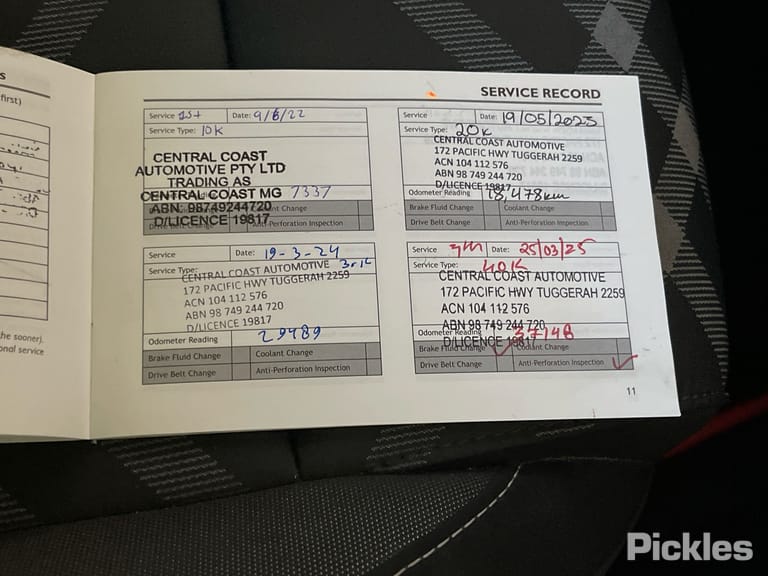 S
first)
he sooner).
onal service
SERVICE RECORD
Service 1st Date: 9/6/22
Service Type: 10K
CENTRAL COAST
AUTOMOTIVE PTY LTD
TRADING AS
CENTRAL COAST MG 7337
ABN: 98749244720
D/LICENCE 19817
Brake Fluid Change Coolant Change
Drive Belt Change Anti-Perforation Inspection
Service Date: 19/05/2023
Service Type: 20K
CENTRAL COAST AUTOMOTIVE
172 PACIFIC HWY TUGGERAH 2259
ACN 104 112 576
ABN 98 749 244 720
D/LICENCE 19817
Odometer Reading 18,478km
Brake Fluid Change Coolant Change
Drive Belt Change Anti-Perforation Inspection
Service Date: 19-3-24
Service Type:
CENTRAL COAST AUTOMOTIVE
172 PACIFIC HWY TUGGERAH 2259
ACN 104 112 576
ABN 98 749 244 720
D/LICENCE 19817
Odometer Reading 29489
Brake Fluid Change Coolant Change
Drive Belt Change Anti-Perforation Inspection
Service Date: 25/03/25
Service Type: 40K
CENTRAL COAST AUTOMOTIVE
172 PACIFIC HWY TUGGERAH 2259
ACN 104 112 576
ABN 98 749 244 720
Odometer Reading 37148
D/LICENCE 19817
Brake Fluid Change Coolant Change
Drive Belt Change Anti-Perforation Inspection
11
Pickles